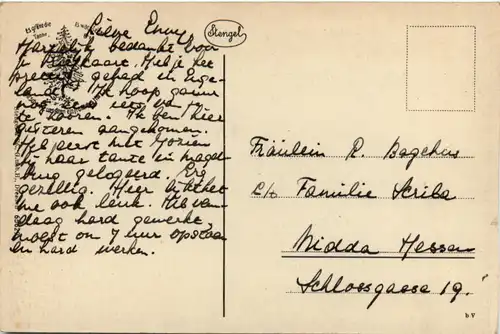 Lieve Enny
Hartelijk bedankt voor
je briefkaart. Heb je het
prettig gehad in Enge-
land? Ik hoop gauw
nog eens iets van je
te hooren. Ik ben hier
gisteren aangekomen.
Heb eerst bij
haar tante in Magde-
burg gelogeerd. Erg
gezellig. Hier lijkt het
me ook leuk. Heb van-
daag hard gewerkt,
moest om 7 uur opstaan
en hard werken.
Stengel
Fräulein R. Bagehus
c/o Familie Scriba
Nidda Hessen
Schlossgasse 19.
b V